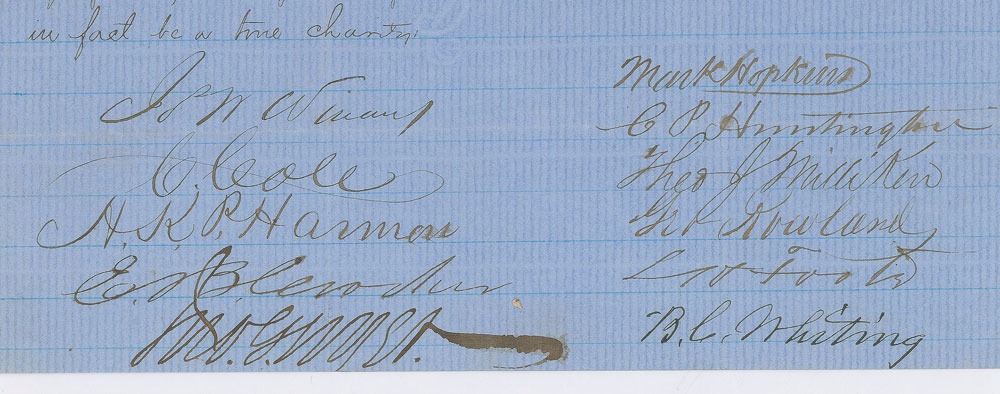 in fact be a true charity.
Jos W Winans
C. Cole
A. K. P. Harmon
E. B. Crocker
Mark Hopkins
C P Huntington
Theo J Milliken
Geo Rowland
L H Foote
B. C. Whiting